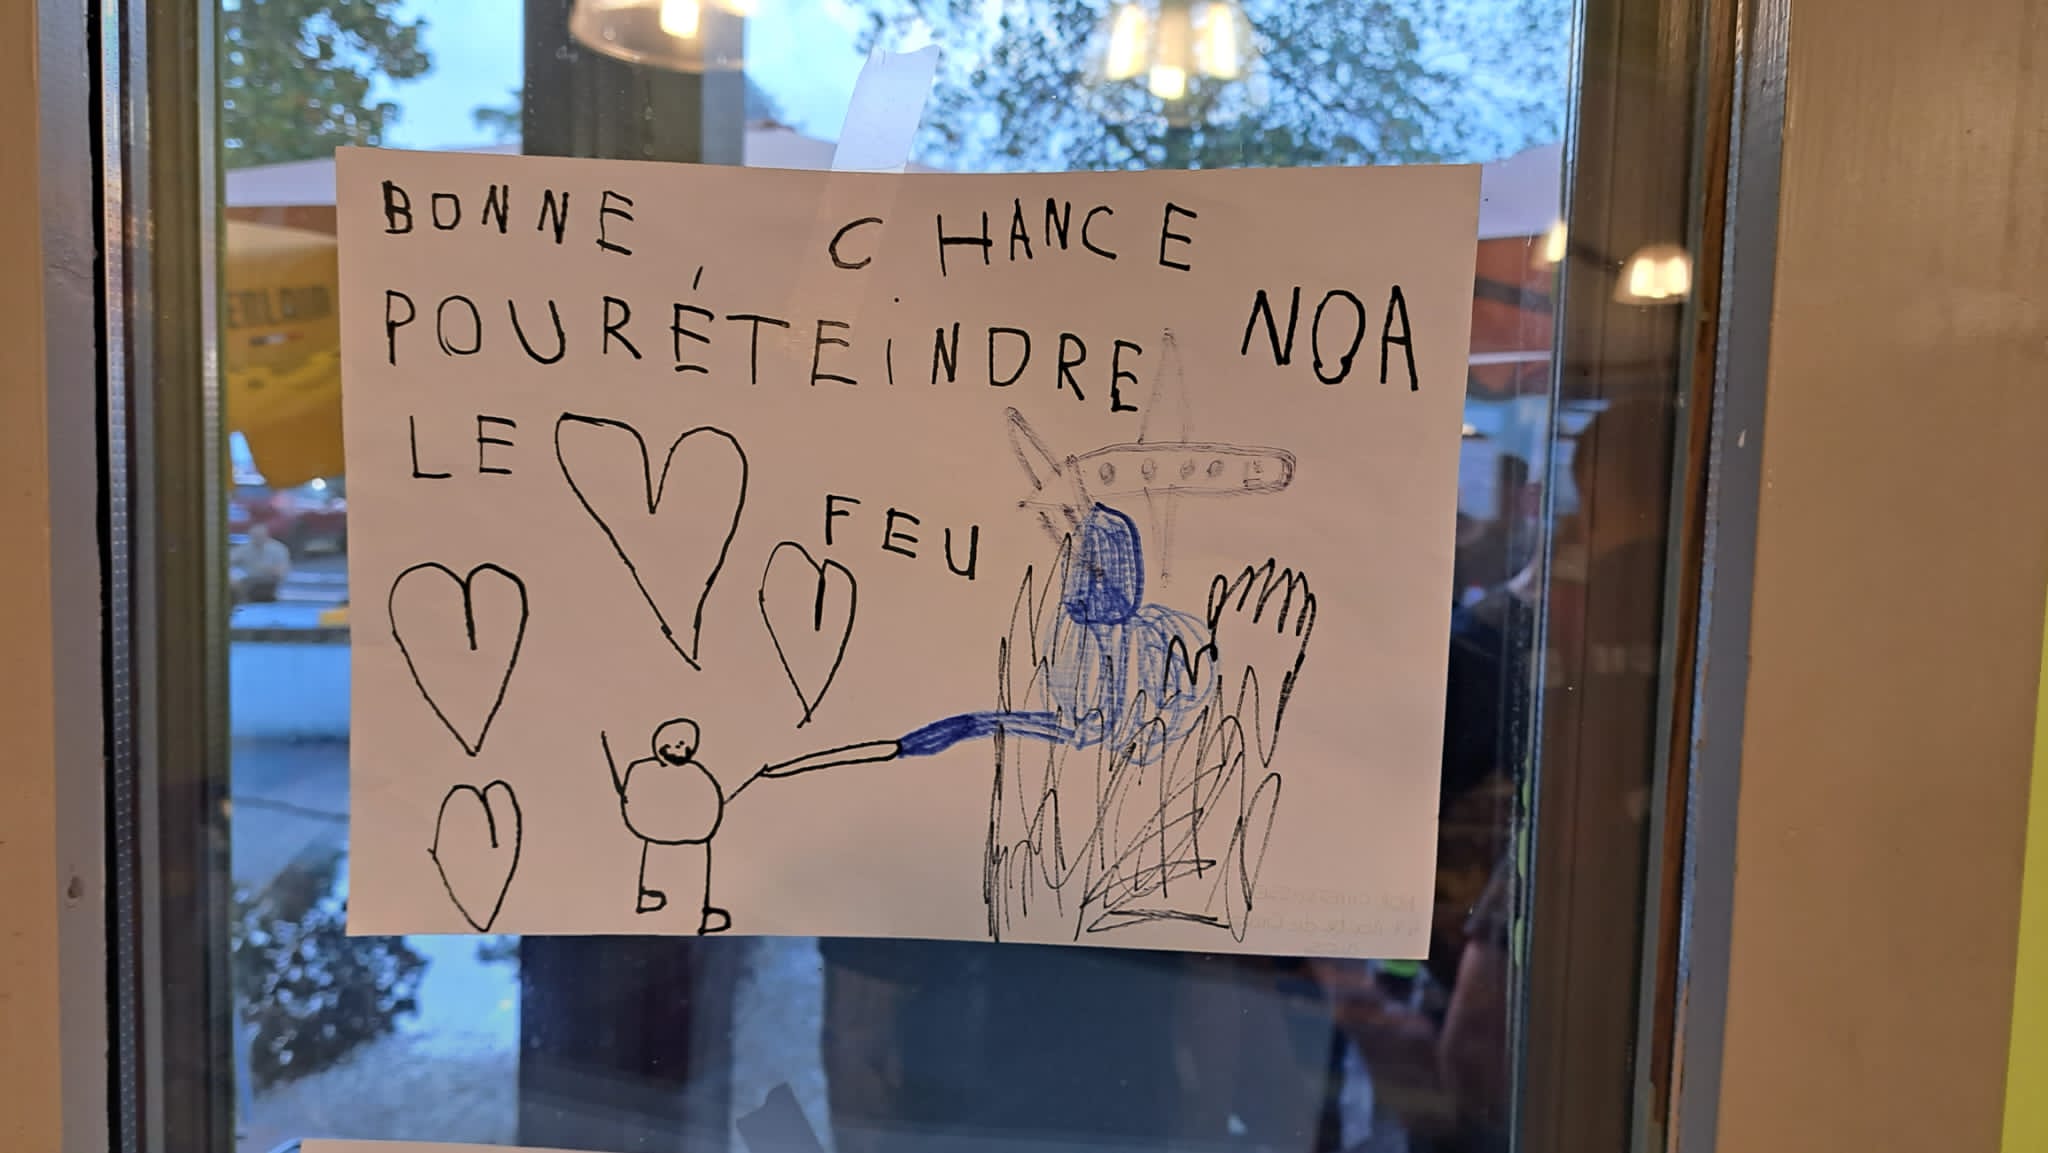 BONNE CHANCE
POUR ÉTEINDRE
NOA
LE
FEU